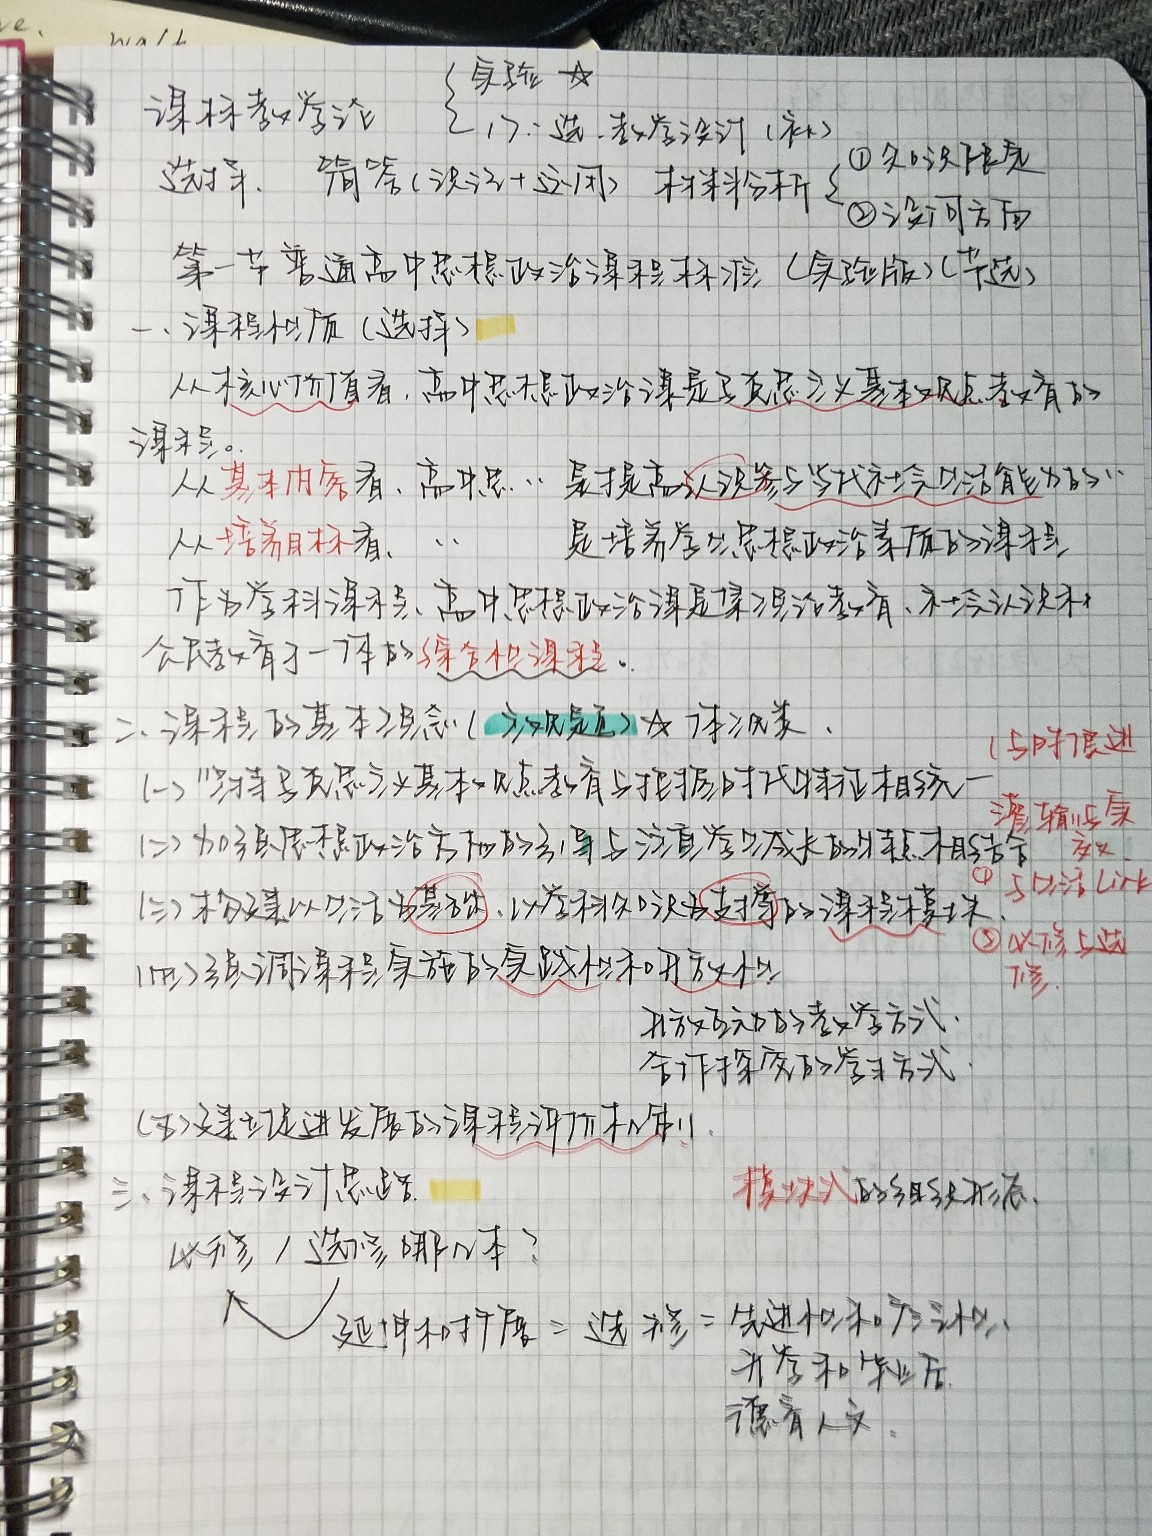 walk
课标教学论 { 实验 ☆
17: 选. 教学设计(补)
选择、 简答(识记+运用) 材料分析 { ①知识股宽
②设问方面
第一节 普通高中思想政治课程标准(实验版)(节选)
一、课程性质(选择)
从核心价值看、高中思想政治课是马克思主义基本观点教育的
课程。
从基本内容看、高中思‥ 是提高认识参与当代社会生活能力的‥
从培养目标看、 ‥ 是培养学生思想政治素质的课程
作为学科课程、高中思想政治课是集德治教育、社会认识和
公民教育于一体的综合性课程。
二、课程的基本理念(主观题)☆ 体现类.
(与时俱进
(一)坚持马克思主义基本观点教育与把握时代特征相统一
灌输与实
(二)加强思想政治方向的引导与注重学生成长的特点相结合
(三)构建以生活为基础、以学科知识为支撑的课程模块.
①与生活Link
②必修与选修.
(四)强调课程实施的实践性和开放性
开放互动的教学方式.
合作探究的学习方式.
(五)建立促进发展的课程评价机制.
三、课程设计思路. 模块式的组织形态.
必修/选修哪几本?
延伸和扩展=选修=先进性和广泛性、
升学和毕业后.
德育人文.